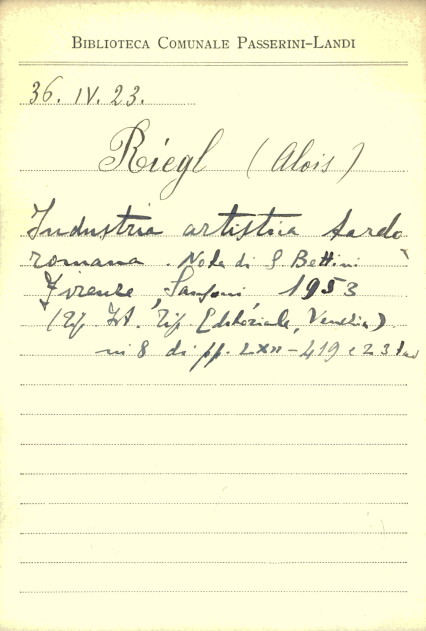 BIBLIOTECA COMUNALE PASSERINI-LANDI
36. IV. 23.
Riegl (Alois)
Industria artistica tardo
romana. Nota di S. Bettini
Firenze, Sansoni, 1953
(Tip. Ist. Tip. Editoriale, Venezia)
in 8 di pp. LXII - 419 e 23 tav